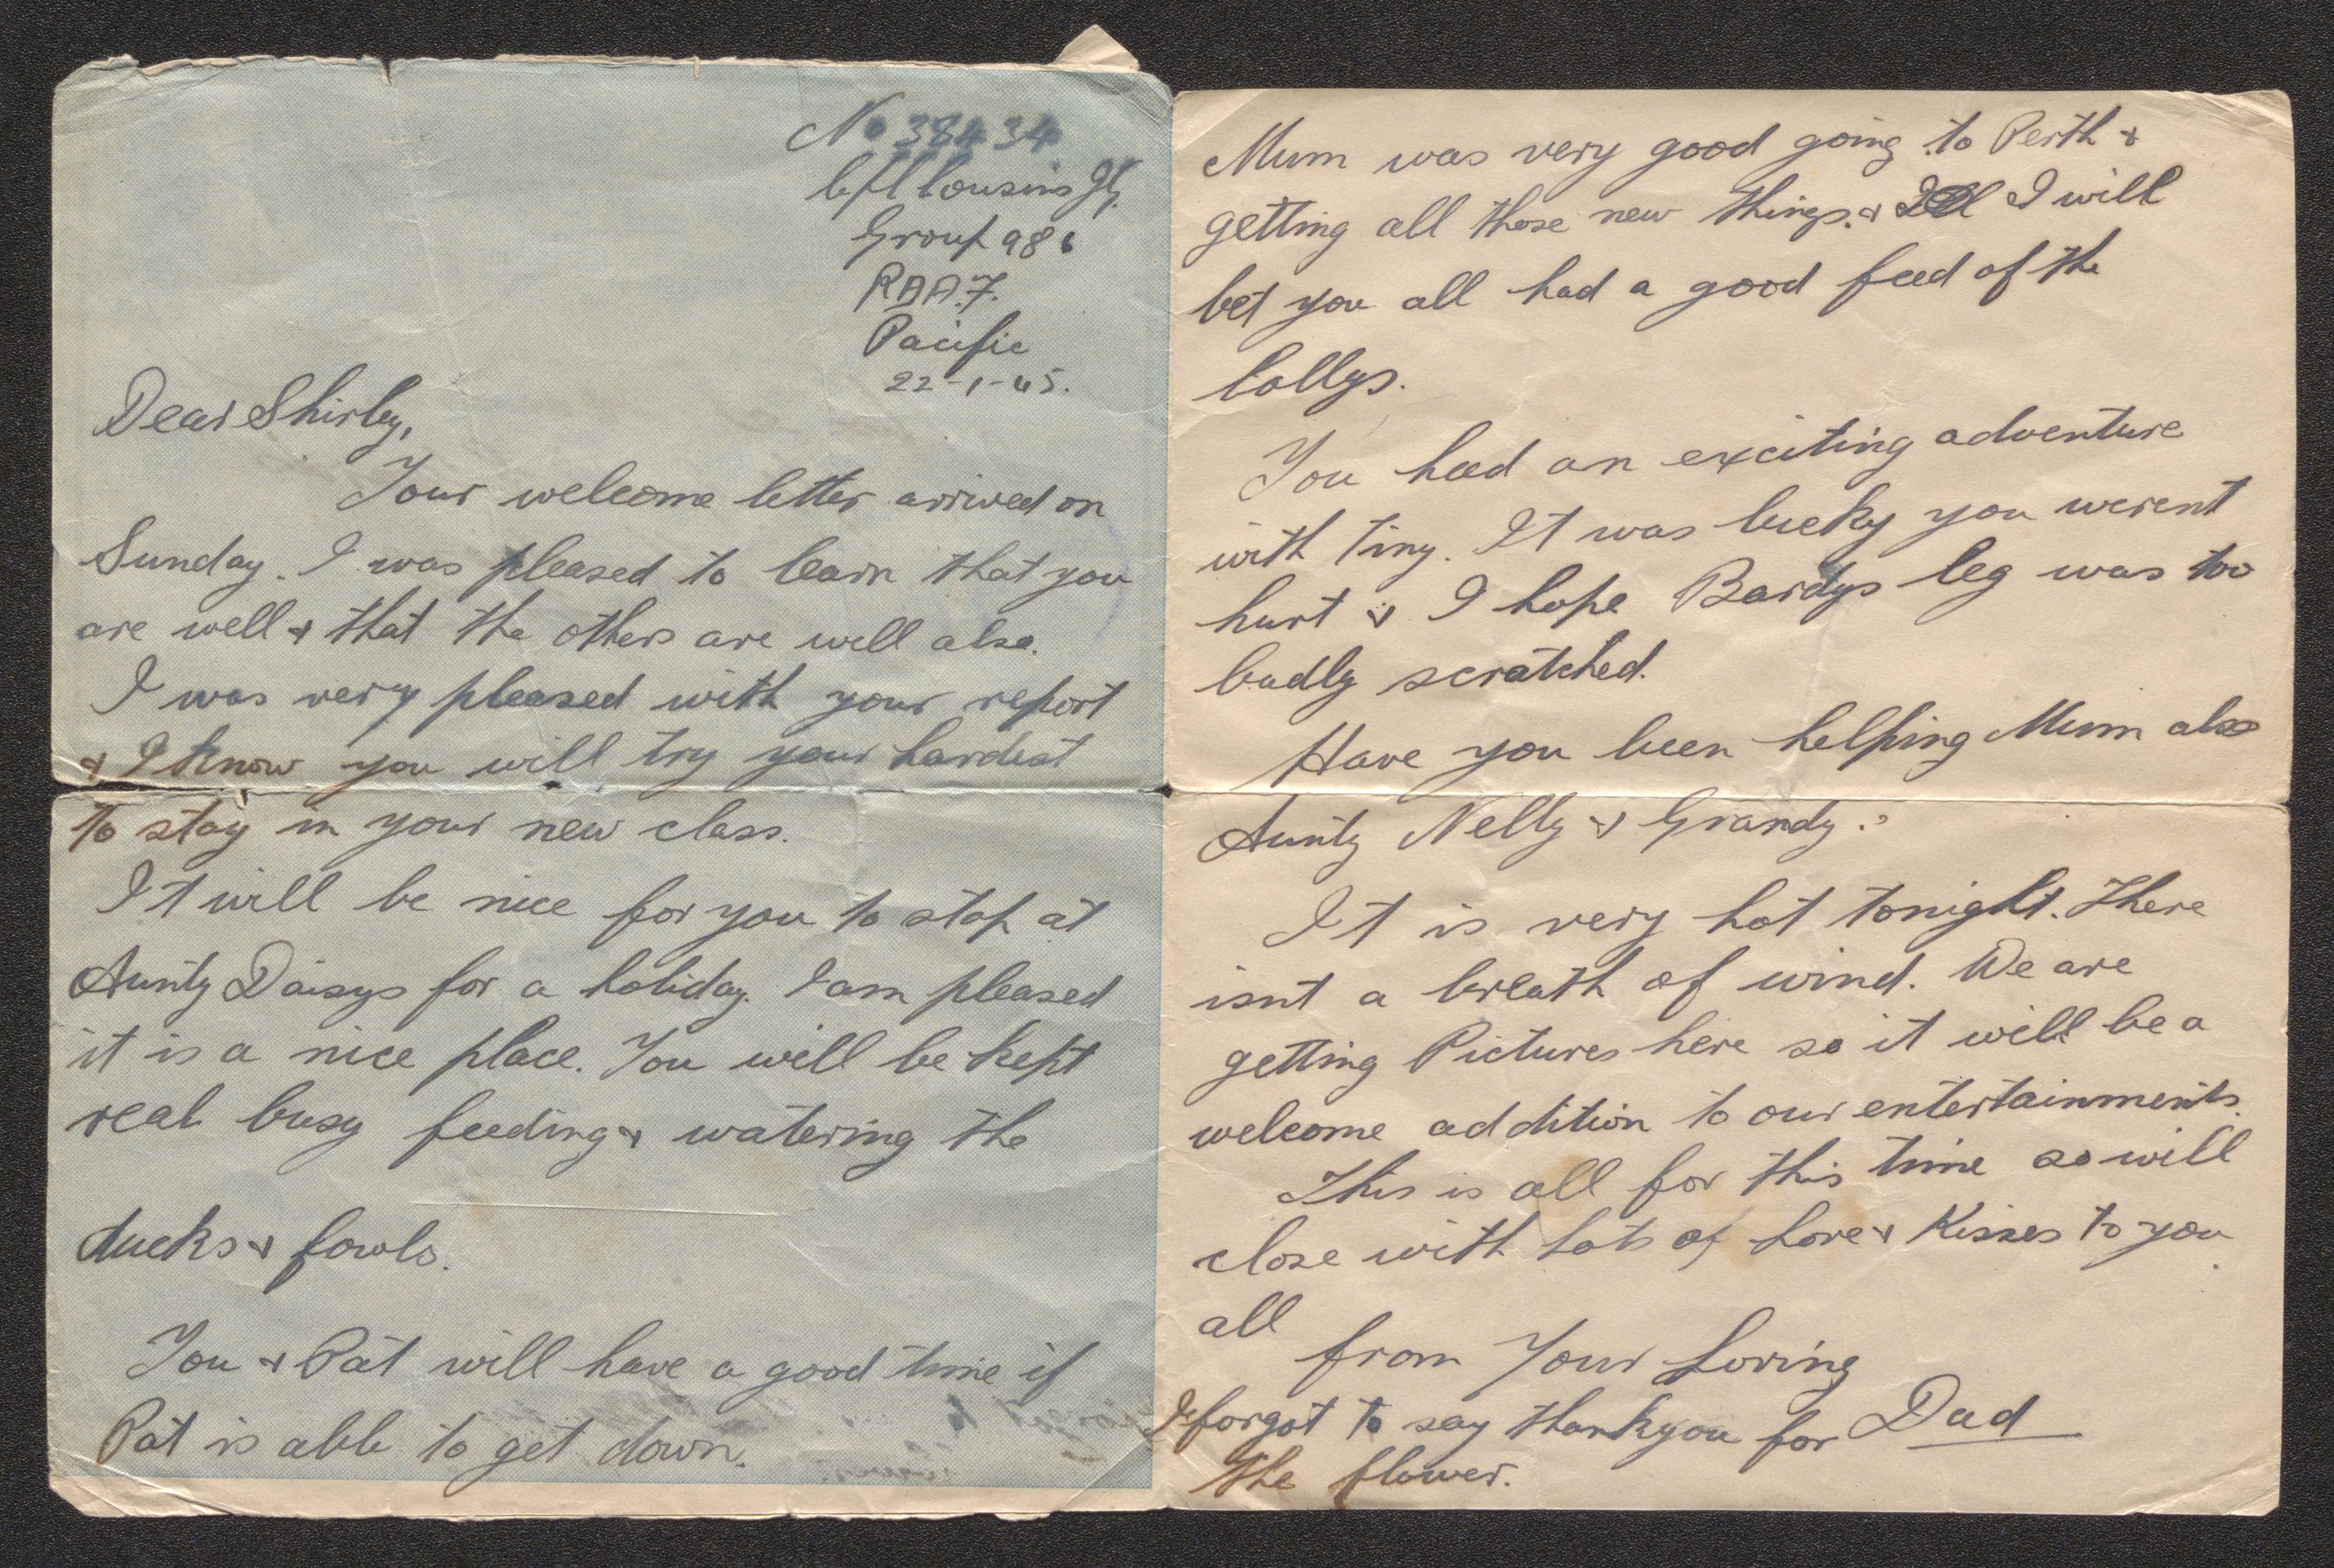 No 38434
Cpl Cousins
Group 986
RAAF.
Pacific
22-1-45.
Dear Shirley,
Your welcome letter arrived on
Sunday. I was pleased to learn that you
are well & that the others are well also.
I was very pleased with your report
& I know you will try your hardest
to stay in your new class.
It will be nice for you to stop at
Aunty Daisys for a holiday. I am pleased
it is a nice place. You will be kept
real busy feeding & watering the
ducks & fowls.
You & Pat will have a good time if
Pat is able to get down.
Mum was very good going to Perth &
getting all those new things. & I will
bet you all had a good feed of the
lollys.
You had an exciting adventure
with Tiny. It was lucky you werent
hurt & I hope Bardys leg was too
badly scratched.
Have you been helping Mum also
Aunty Nelly & Grandy.?
It is very hot tonight. There
isnt a breath of wind. We are
getting Pictures here so it will be a
welcome addition to our entertainments.
This is all for this time so will
close with Lots of Love & Kisses to you
all
from Your Loving
Dad
I forgot to say thankyou for
the flower.